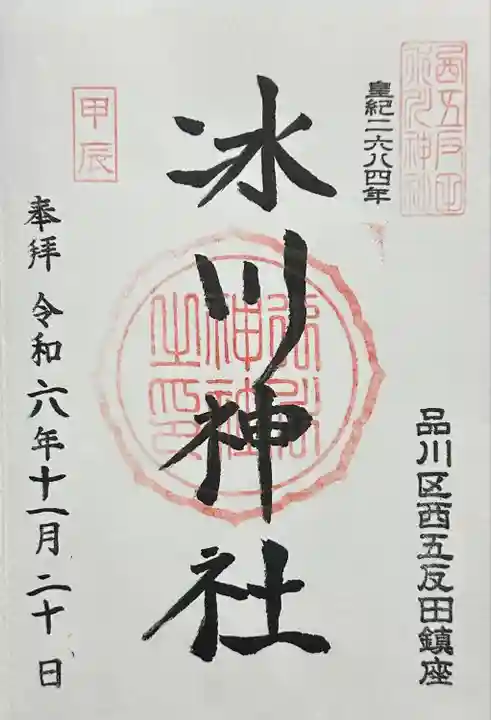 西五反田
氷川神社
皇紀二六八四年
品川区西五反田鎮座
冰川神社
氷川
神社
之印
甲辰
奉拝 令和六年十一月二十日